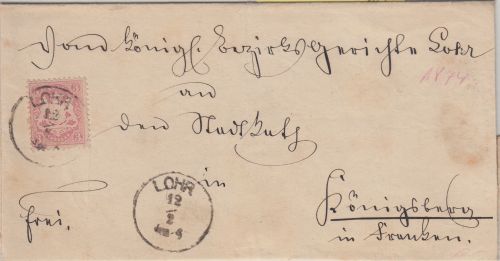 Vom Königl. Bezirksgerichte Lohr
1874
an
den Stadtrath
in
Königsberg
in Franken.
frei.
LOHR
12
2
LOHR
12
2